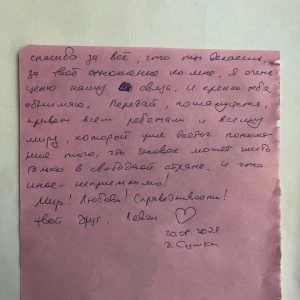 спасибо за всё, что ты делаешь,
за твоё отношение ко мне. Я очень
ценю нашу связь. И крепко тебя
обнимаю. Передай, пожалуйста,
привет всем ребятам и всему
миру, который уже достиг понима-
ния того, что человек может жить
только в свободной стране. И что
иное - неприемлемо.
Мир! Любовь! Справедливость!
твой друг, Леван ♡
г. Сушки